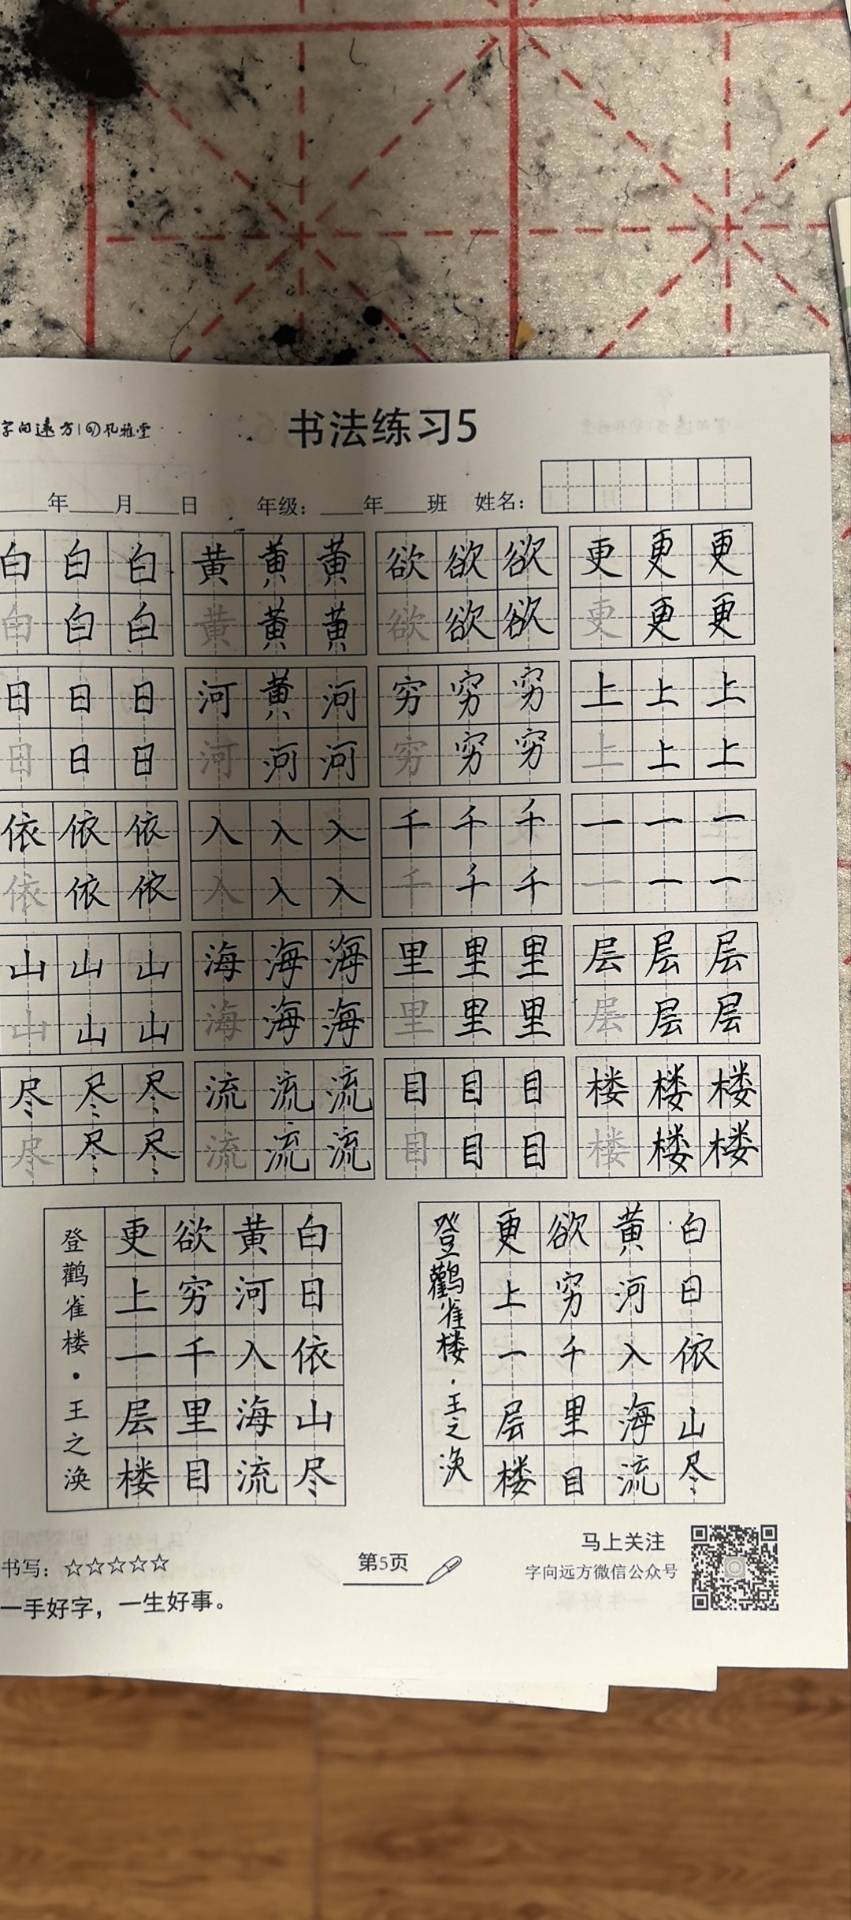 字向远方|孔雅堂
书法练习5
年 月 日 年级： 年 班 姓名：
白 白 白 黄 黄 黄 欲 欲 欲 更 更 更
白 白 白 黄 黄 黄 欲 欲 欲 更 更 更
日 日 日 河 黄 河 穷 穷 穷 上 上 上
日 日 日 河 河 河 穷 穷 穷 上 上 上
依 依 依 入 入 入 千 千 千 一 一 一
依 依 依 入 入 入 千 千 千 一 一 一
山 山 山 海 海 海 里 里 里 层 层 层
山 山 山 海 海 海 里 里 里 层 层 层
尽 尽 尽 流 流 流 目 目 目 楼 楼 楼
尽 尽 尽 流 流 流 目 目 目 楼 楼 楼
白日依山尽
黄河入海流
欲穷千里目
更上一层楼
登鹳雀楼·王之涣
白日依山尽
黄河入海流
欲穷千里目
更上一层楼
登鹳雀楼·王之涣
书写：☆☆☆☆☆
一手好字，一生好事。
第5页
马上关注
字向远方微信公众号